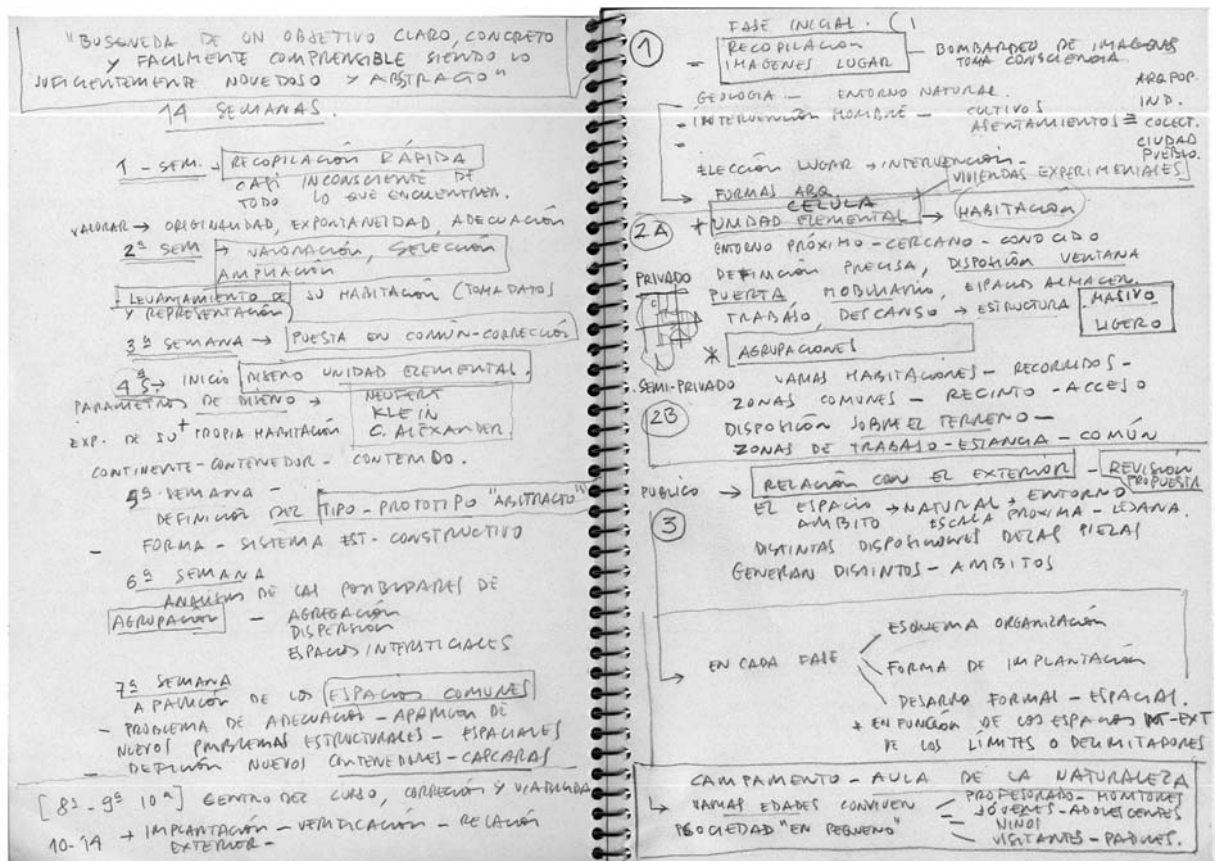 "BUSQUEDA DE UN OBJETIVO CLARO, CONCRETO
Y FACILMENTE COMPRENSIBLE SIENDO LO
SUFICIENTEMENTE NOVEDOSO Y ABSTRACTO"
14 SEMANAS.
1 - SEM. → RECOPILACIÓN RÁPIDA
CASI INCONSCIENTE DE
TODO LO QUE ENCUENTREN.
VALORAR → ORIGINALIDAD, EXPONTANEIDAD, ADECUACIÓN
2ª SEM → VALORACIÓN, SELECCIÓN
AMPLIACIÓN
LEVANTAMIENTO DE SU HABITACIÓN (TOMA DATOS
Y REPRESENTACIÓN)
3ª SEMANA → PUESTA EN COMÚN-CORRECCIÓN
4ª S → INICIO DISEÑO UNIDAD ELEMENTAL.
PARÁMETROS DE DISEÑO → NEUFERT
KLEIN
C. ALEXANDER
EXP. DE SU + PROPIA HABITACIÓN
CONTINENTE-CONTENEDOR - CONTENIDO.
5ª SEMANA -
DEFINICIÓN DEL TIPO - PROTOTIPO "ABSTRACTO"
- FORMA - SISTEMA EST. CONSTRUCTIVO
6ª SEMANA
ANALISIS DE LAS POSIBILIDADES DE
AGRUPACIÓN - AGREGACIÓN
DISPERSION
ESPACIOS INTERSTICIALES
7ª SEMANA
APARICIÓN DE LOS ESPACIOS COMUNES
- PROBLEMA DE ADECUACIÓN - APARICIÓN DE
NUEVOS PROBLEMAS ESTRUCTURALES - ESPACIALES
- DEFINICIÓN NUEVOS CONTENEDORES - CASCARAS
[8ª - 9ª 10ª] CENTRO DEL CURSO, CORRECCIÓN Y VIABILIDAD
10-14 → IMPLANTACIÓN - VERIFICACIÓN - RELACIÓN
EXTERIOR -
FASE INICIAL.
1 - RECOPILACION
IMAGENES LUGAR - BOMBARDEO DE IMAGENES
TOMA CONSCIENCIA
GEOLOGIA - ENTORNO NATURAL.
- INTERVENCIÓN HOMBRE - CULTIVOS
ASENTAMIENTOS
ARQ POP.
IND.
COLECT.
CIUDAD
PUEBLO.
ELECCIÓN LUGAR → INTERVENCIÓN -
FORMAS ARQ. VIVIENDAS EXPERIMENTALES
CELULA
2A * UNIDAD ELEMENTAL → HABITACIÓN
ENTORNO PRÓXIMO - CERCANO - CONOCIDO
PRIVADO DEFINICIÓN PRECISA, DISPOSICIÓN VENTANA
PUERTA, MOBILIARIO, ESPACIOS ALMACEN.
TRABAJO, DESCANSO → ESTRUCTURA MASIVO
LIGERO
* AGRUPACIONES
SEMI-PRIVADO VARIAS HABITACIONES - RECORRIDOS -
ZONAS COMUNES - RECINTO - ACCESO
2B DISPOSICIÓN SOBRE EL TERRENO -
ZONAS DE TRABAJO - ESTANCIA - COMÚN
PUBLICO → RELACIÓN CON EL EXTERIOR - REVISIÓN
PROPUESTA
EL ESPACIO → NATURAL → ENTORNO
AMBITO ESCALA PROXIMA - LEJANA.
3
DISTINTAS DISPOSICIONES DE LAS PIEZAS
GENERAN DISTINTOS - AMBITOS
EN CADA FASE
ESQUEMA ORGANIZACIÓN
FORMA DE IMPLANTACIÓN
DESARRO FORMAL - ESPACIAL.
* EN FUNCIÓN DE LOS ESPACIOS INT-EXT
DE LOS LÍMITES O DELIMITADORES
CAMPAMENTO - AULA DE LA NATURALEZA
VARIAS EDADES CONVIVEN
SOCIEDAD "EN PEQUEÑO"
PROFESORADO - MONITORES
JÓVENES - ADOLESCENTES
NIÑOS
VISITANTES - PADRES.